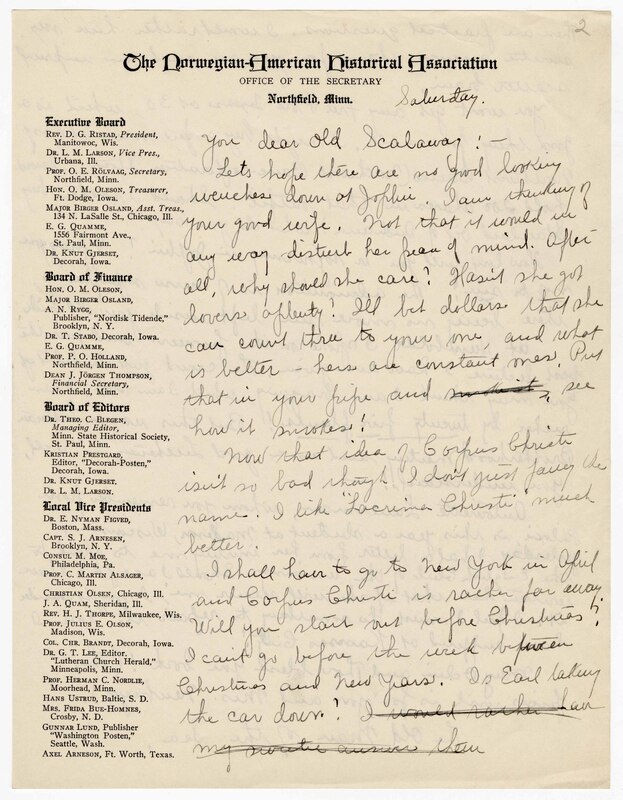 2
The Norwegian-American Historical Association
OFFICE OF THE SECRETARY
Northfield, Minn.
Saturday.
Executive Board
REV. D. G. RISTAD, President,
Manitowoc, Wis.
DR. L. M. LARSON, Vice Pres.,
Urbana, Ill.
PROF. O. E. RÖLVAAG, Secretary,
Northfield, Minn.
HON. O. M. OLESON, Treasurer,
Ft. Dodge, Iowa.
MAJOR BIRGER OSLAND, Asst. Treas.,
134 N. LaSalle St., Chicago, Ill.
E. G. QUAMME,
1556 Fairmont Ave.,
St. Paul, Minn.
DR. KNUT GJERSET,
Decorah, Iowa.
Board of Finance
HON. O. M. OLESON,
MAJOR BIRGER OSLAND,
A. N. RYGG,
Publisher, "Nordisk Tidende,"
Brooklyn, N. Y.
DR. T. STABO, Decorah, Iowa.
E. G. QUAMME,
PROF. P. O. HOLLAND,
Northfield, Minn.
DEAN J. JÖRGEN THOMPSON,
Financial Secretary,
Northfield, Minn.
Board of Editors
DR. THEO. C. BLEGEN,
Managing Editor,
Minn. State Historical Society,
St. Paul, Minn.
KRISTIAN PRESTGARD,
Editor, "Decorah-Posten,"
Decorah, Iowa.
DR. KNUT GJERSET,
DR. L. M. LARSON.
Local Vice Presidents
DR. E. NYMAN FIGVED,
Boston, Mass.
CAPT. S. J. ARNESEN,
Brooklyn, N. Y.
CONSUL M. MOE,
Philadelphia, Pa.
PROF. C. MARTIN ALSAGER,
Chicago, Ill.
CHRISTIAN OLSEN, Chicago, Ill.
J. A. QUAM, Sheridan, Ill.
REV. H. J. THORPE, Milwaukee, Wis.
PROF. JULIUS E. OLSON,
Madison, Wis.
COL. CHR. BRANDT, Decorah, Iowa.
DR. G. T. LEE, Editor,
"Lutheran Church Herald,"
Minneapolis, Minn.
PROF. HERMAN C. NORDLIE,
Moorhead, Minn.
HANS USTRUD, Baltic, S. D.
MRS. FRIDA BUE-HOMNES,
Crosby, N. D.
GUNNAR LUND, Publisher
"Washington Posten,"
Seattle, Wash.
AXEL ARNESON, Ft. Worth, Texas.
You dear old Scalawag! -
Lets hope there are no good looking
wenches down at Joplin. I am thinking of
your good wife. Not that it would in
any way disturb her peace of mind. After
all, why should she care? Hasn't she got
lovers aplenty? I'll bet dollars that she
can count three to your one, and what
is better - hers are constant ones. Put
that in your pipe and see
how it smokes!
Now that idea of Corpus Christi
isn't so bad though I don't just fancy the
name. I like "Lacrima Christi" much
better.
I shall have to go to New York in April
and Corpus Christi is rather far away.
Will you start out before Christmas?
I can't go before the week between
Christmas and New Years. Is Earl taking
the car down? I would rather have
my answer them